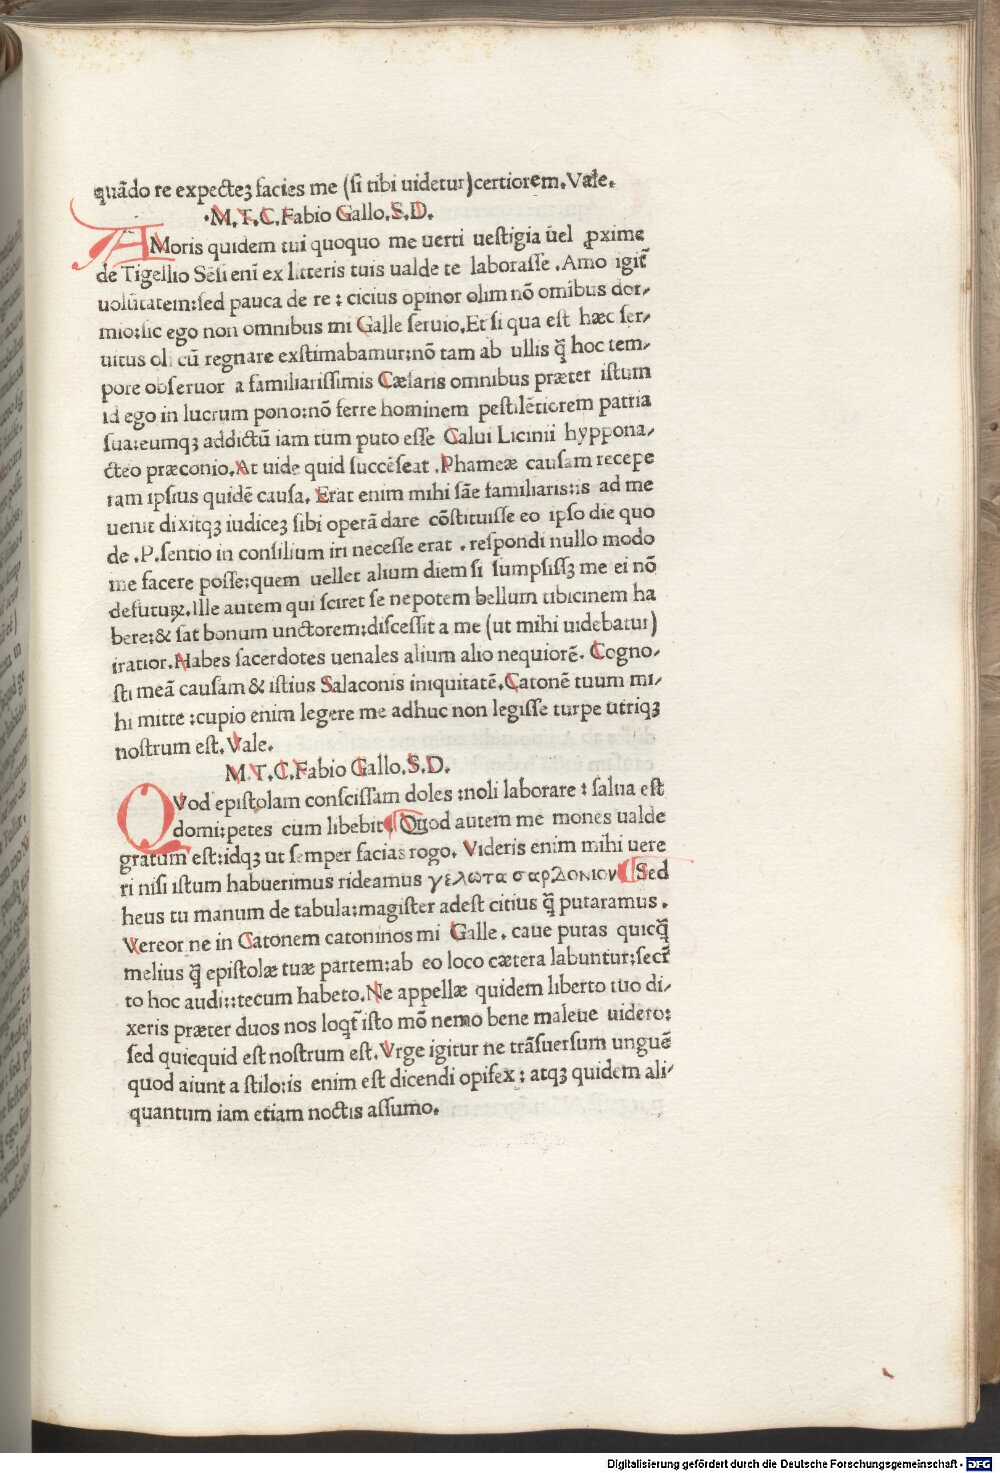 quãdo te expecteꝫ facies me (si tibi uidetur) certiorem. Vale.
.M. T. C. Fabio Gallo. S. D.
AMoris quidem tui quoquo me uerti uestigia uel ꝓxime
de Tigellio Sẽsi enĩ ex litteris tuis ualde te laborasse. Amo igit̃
uolũtatem: sed pauca de re: cicius opinor olim nõ omibus dor-
mio: sic ego non omnibus mi Galle seruio. Et si qua est hæc ser-
uitus oli cũ regnare exstimabamur: nõ tam ab ullis q̃ hoc tem-
pore obseruor a familiarissimis Cæsaris omnibus præter istum
id ego in lucrum pono: nõ ferre hominem pestilẽtiorem patria
sua: eumqꝫ addictũ iam tum puto esse Calui Licinii hyppona-
cteo præconio. At uide quid succẽseat. Phameæ causam recepe
ram ipsius quidẽ causa. Erat enim mihi sãe familiaris: is ad me
uenit dixitqꝫ iudiceꝫ sibi operã dare cõstituisse eo ipso die quo
de .P. sentio in consilium iri necesse erat. respondi nullo modo
me facere posse: quem uellet alium diem si sumpsissꝫ me ei nõ
defuturꝝ. Ille autem qui sciret se nepotem bellum tibicinem ha
bere: & sat bonum unctorem: discessit a me (ut mihi uidebatur)
iratior. Habes sacerdotes uenales alium alio nequiorẽ. Cogno-
sti meã causam & istius Salaconis iniquitatẽ. Catonẽ tuum mi-
hi mitte: cupio enim legere me adhuc non legisse turpe utriqꝫ
nostrum est. Vale.
M. T. C. Fabio Gallo. S. D.
QVod epistolam conscissam doles: noli laborare: salua est
domi: petes cum libebit. Quod autem me mones ualde
gratum est: idqꝫ ut semper facias rogo. Videris enim mihi uere
ri nisi istum habuerimus rideamus γελωτα σαρδονιον Sed
heus tu manum de tabula: magister adest citius q̃ putaramus.
Vereor ne in Catonem catoninos mi Galle. caue putas quicq̃
melius q̃ epistolæ tuæ partem: ab eo loco cætera labuntur: secr̃
to hoc audi:: tecum habeto. Ne appellæ quidem liberto tuo di-
xeris præter duos nos loqt̃ isto mõ nemo bene maleue uidero:
sed quicquid est nostrum est. Vrge igitur ne trãsuersum unguẽ
quod aiunt a stilo: is enim est dicendi opifex: atqꝫ quidem ali-
quantum iam etiam noctis assumo.
Digitalisierung gefördert durch die Deutsche Forschungsgemeinschaft - DFG